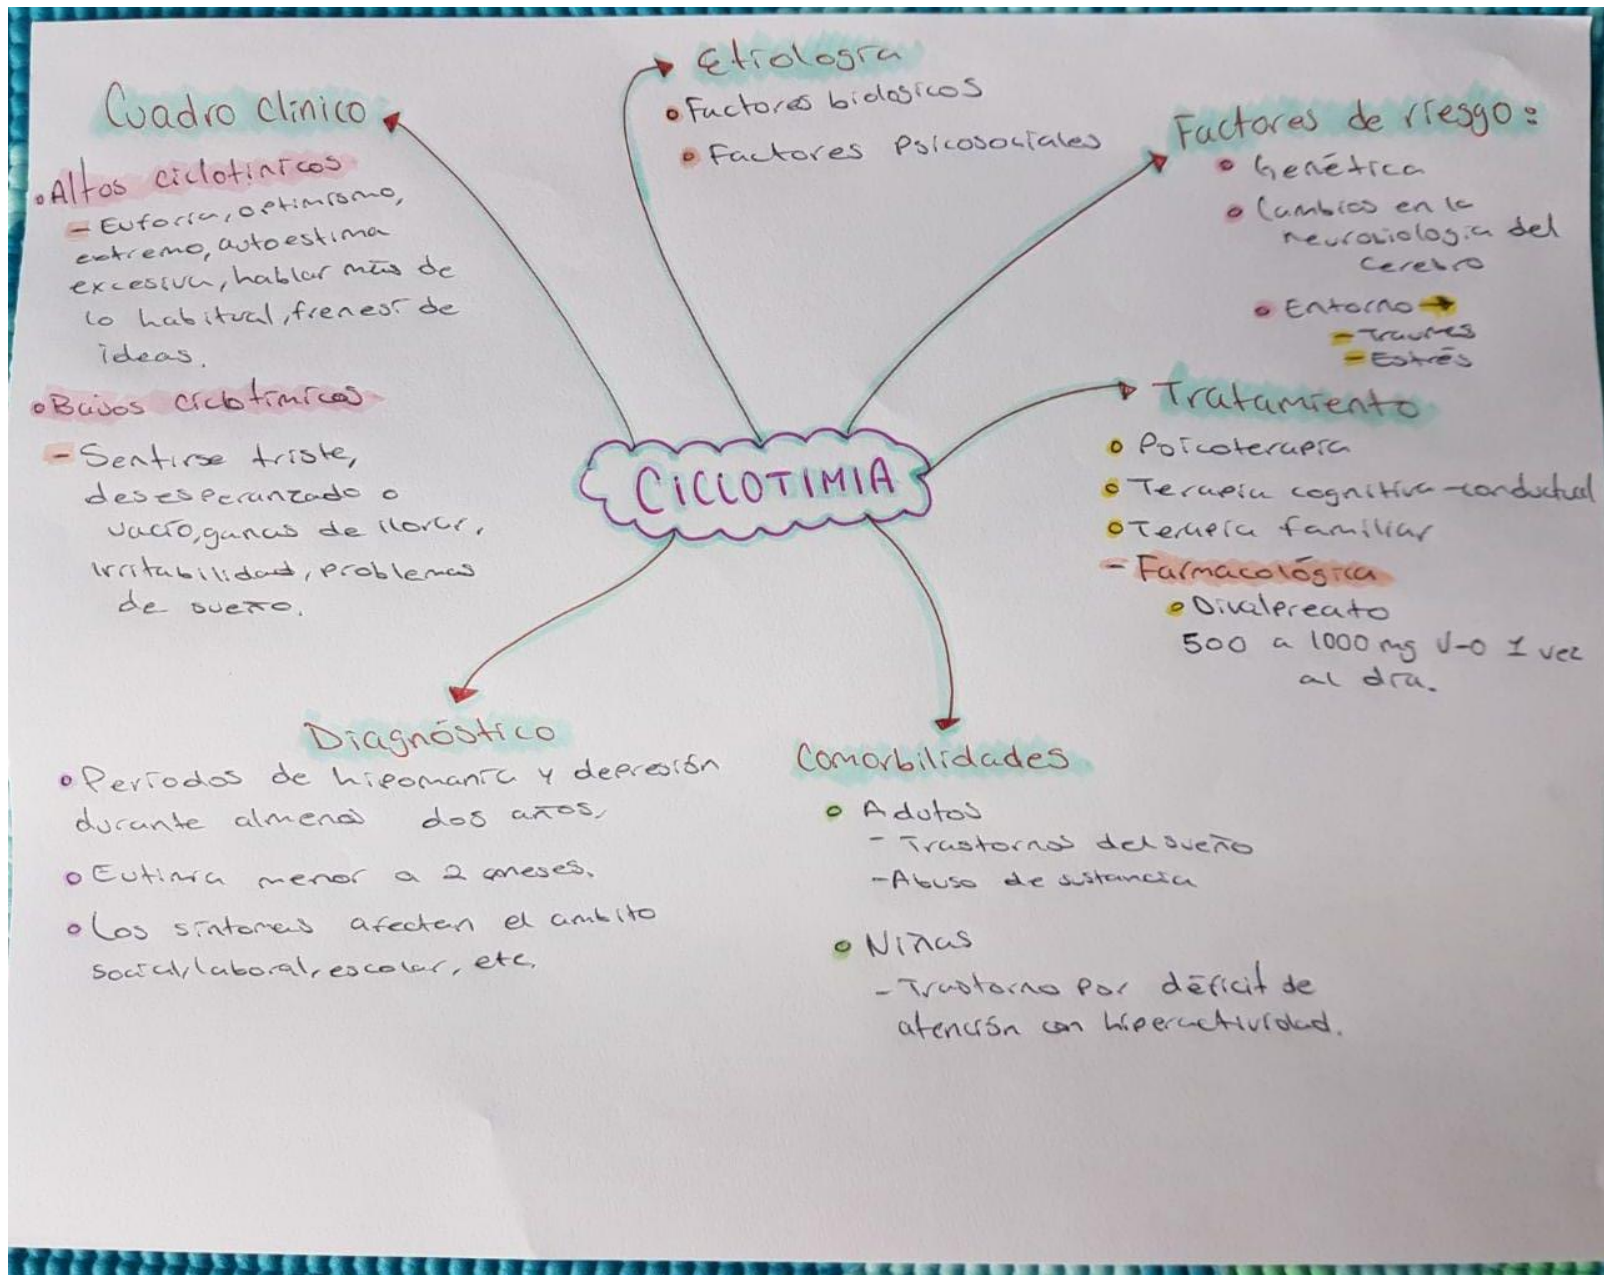 CICLOTIMIA
Cuadro clínico
Altos ciclotínicos
- Euforia, optimismo,
extremo, autoestima
excesiva, hablar más de
lo habitual, frenesí de
ideas.
Bajos ciclotímicos
- Sentirse triste,
desesperanzado o
vacío, ganas de llorar,
irritabilidad, problemas
de sueño.
Etiología
Factores biologicos
Factores Psicosociales
Factores de riesgo:
Genética
Cambios en la
neurobiologia del
cerebro
Entorno →
- Traumas
- Estrés
Tratamiento
Psicoterapia
Terapia cognitiva-conductual
Terapia familiar
- Farmacológica
Divalpreato
500 a 1000 mg V-O 1 vez
al día.
Diagnóstico
Períodos de hipomanía y depresión
durante almenos dos años.
Eutimia menor a 2 meses.
Los síntomas afectan el ambito
social, laboral, escolar, etc.
Comorbilidades
Adutos
- Trastornos del sueño
- Abuso de sustancia
Niñas
- Trastorno por déficit de
atención con hiperactividad.